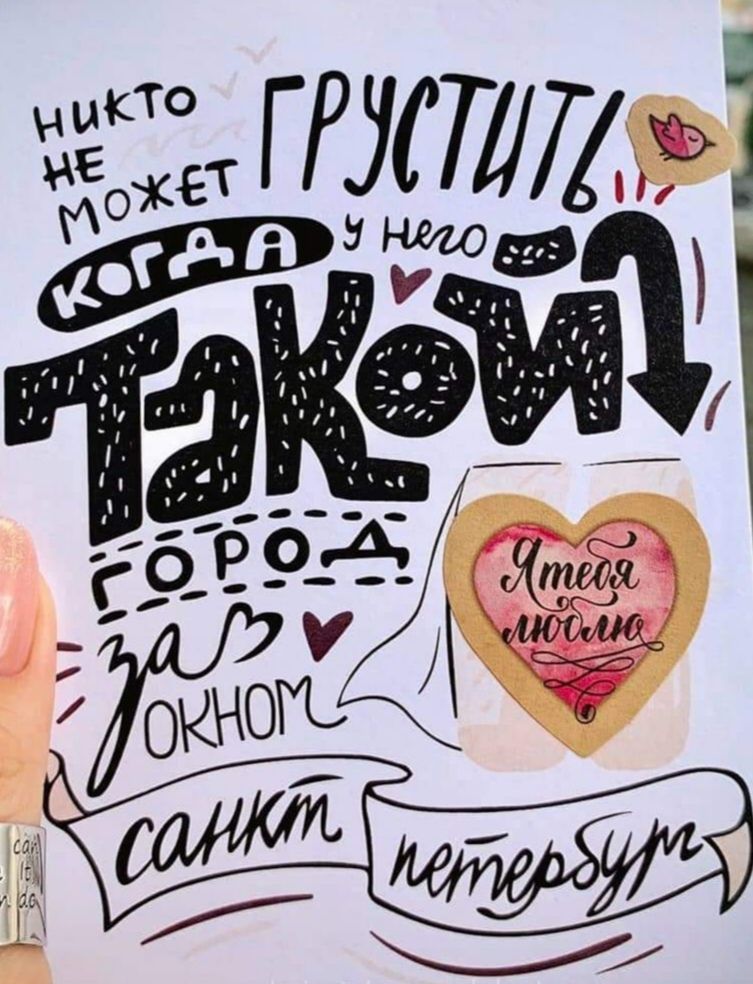 никто
не
может
грустить
когда у него
такой
город
за
окном
Я тебя
люблю
санкт
петербург
can
it
do